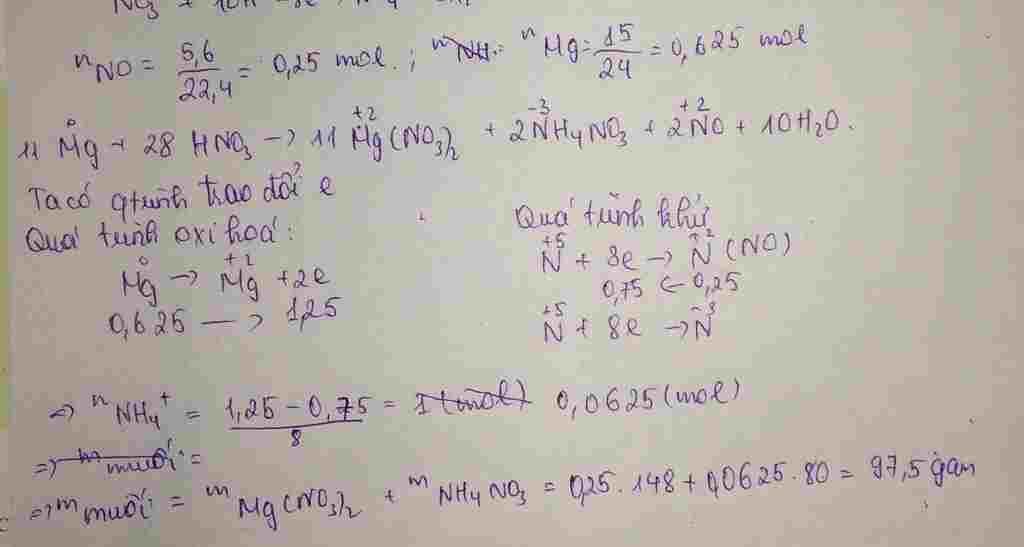 NO3 + 10H
nNO = 5,6/22,4 = 0,25 mol. ; nNH. nMg = 15/24 = 0,625 mol
11 Mg⁰ + 28 HNO3 → 11 Mg⁺²(NO3)2 + 2N⁻³H4NO3 + 2N⁺²O + 10H2O.
Ta có qtrình trao đổi e
Quá trình oxi hoá:
Mg⁰ → Mg⁺² + 2e
0,625 —> 1,25
Quá trình khử
N⁺⁵ + 3e → N⁺² (NO)
0,75 ← 0,25
N⁺⁵ + 8e → N⁻³
=> nNH4⁺ = (1,25 – 0,75)/8 = 1 (mol) 0,0625 (mol)
=> m muối =
=> m muối = mMg(NO3)2 + mNH4NO3 = 0,25.148 + 0,0625.80 = 97,5 gam